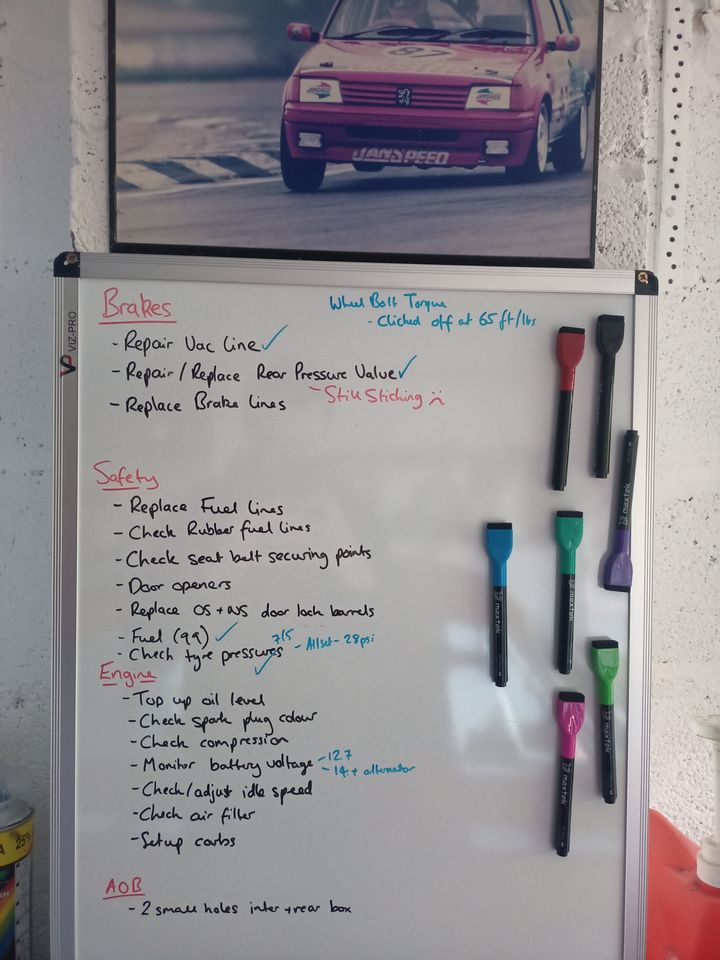 97
JANSPEED
JANSPEED
JANSPEED
VIZ-PRO
Wheel Bolt Torque
- Clicked off at 65 ft/lbs
Brakes
- Repair Vac Line ✓
- Repair / Replace Rear Pressure Valve ✓
- Still Sticking :(
- Replace Brake Lines
Safety
- Replace Fuel Lines
- Check Rubber fuel lines
- Check seat belt securing points
- Door openers
- Replace OS + N/S door lock barrels
- Fuel (99) ✓
- Check tyre pressures ✓ 7/5 - All set - 28psi
Engine
- Top up oil level
- Check spark plug colour
- Check compression
- Monitor battery voltage - 12.7
- 14.+ alternator
- Check/adjust idle speed
- Check air filter
- Setup carbs
AOB
- 2 small holes inter + rear box
maxtek
maxtek
maxtek
maxtek
maxtek
25%